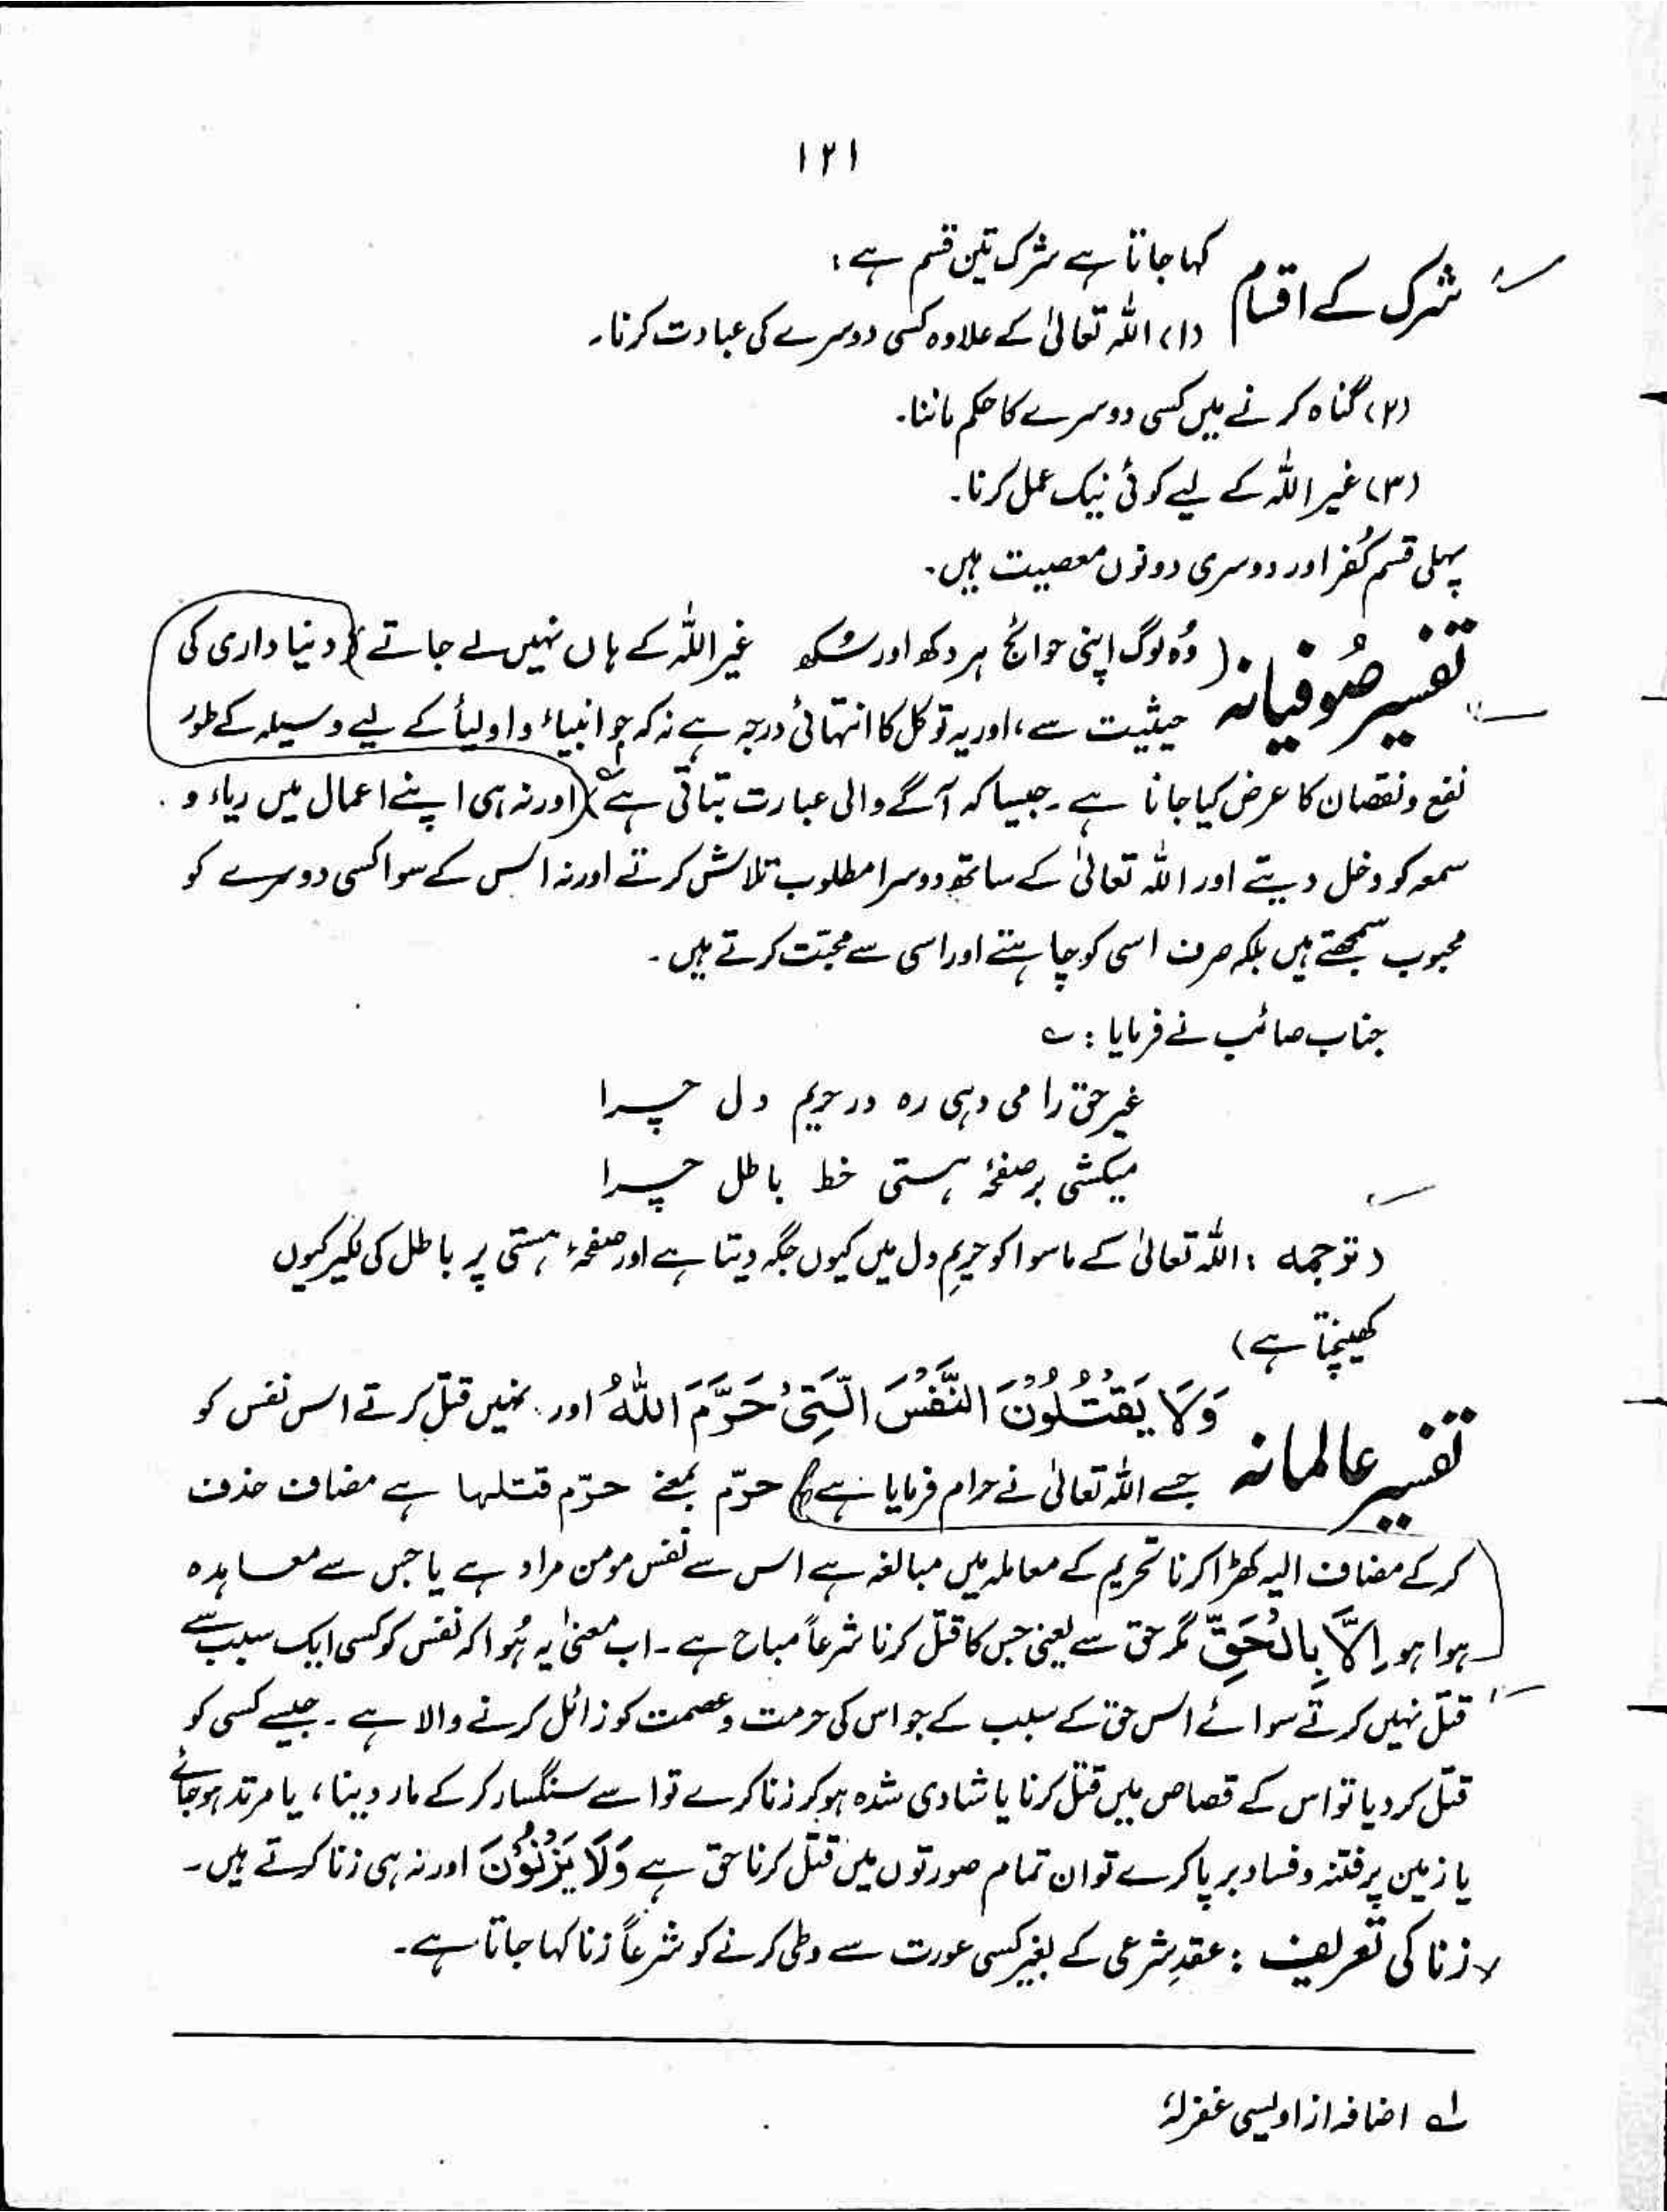 ۱۲۱
شرک کے اقسام کہا جاتا ہے شرک تین قسم ہے :
(۱) اللہ تعالیٰ کے علاوہ کسی دوسرے کی عبادت کرنا۔
(۲) گناہ کرنے میں کسی دوسرے کا حکم ماننا۔
(۳) غیر اللہ کے لیے کوئی نیک عمل کرنا۔
پہلی قسم کُفر اور دوسری دونوں معصیت ہیں۔
تفسیر صُوفیانہ ( وُہ لوگ اپنی حوائج ہر دکھ اور سُکھ غیر اللہ کے ہاں نہیں لے جاتے ) ( دنیا داری کی
حیثیت سے، اور یہ توکل کا انتہائی درجہ ہے نہ کہ جو انبیاء و اولیأ کے لیے وسیلہ کے طور
نفع و نقصان کا عرض کیا جاتا ہے۔ جیسا کہ آگے والی عبارت بتاتی ہے ) ( اور نہ ہی اپنے اعمال میں ریاء و
سمعہ کو دخل دیتے اور اللہ تعالیٰ کے ساتھ دوسرا مطلوب تلاش کرتے اور نہ اس کے سوا کسی دوسرے کو
محبوب سمجھتے ہیں بلکہ صرف اسی کو چاہتے اور اسی سے محبّت کرتے ہیں۔
جناب صائب نے فرمایا : ؎
غیر حق را می دہی رہ در حریم دل چرا
میکشی بر صفحۂ ہستی خط باطل چرا
( ترجمہ : اللہ تعالیٰ کے ماسوا کو حریمِ دل میں کیوں جگہ دیتا ہے اور صفحۂ ہستی پر باطل کی لکیر کیوں
کھینچتا ہے )
تفسیر عالمانہ وَلَا یَقْتُلُوْنَ النَّفْسَ الَّتِیْ حَرَّمَ اللّٰهُ اور نہیں قتل کرتے اس نفس کو
جسے اللہ تعالیٰ نے حرام فرمایا ہے ( حرّم بمعنے حرّم قتلہا ہے مضاف حذف
کر کے مضاف الیہ کھڑا کرنا تحریم کے معاملہ میں مبالغہ ہے اس سے نفس مومن مراد ہے یا جس سے معاہدہ
ہوا ہو اِلَّا بِالْحَقِّ مگر حق سے یعنی جس کا قتل کرنا شرعاً مباح ہے۔ اب معنیٰ یہ ہُوا کہ نفس کو کسی ایک سبب سے
قتل نہیں کرتے سوائے اس حق کے سبب کے جو اس کی حرمت و عصمت کو زائل کرنے والا ہے۔ جیسے کسی کو
قتل کر دیا تو اس کے قصاص میں قتل کرنا یا شادی شدہ ہو کر زنا کرے تو اسے سنگسار کر کے مار دینا، یا مرتد ہو جائے
یا زمین پر فتنہ و فساد برپا کرے تو ان تمام صورتوں میں قتل کرنا حق ہے وَلَا یَزْنُوْنَ اور نہ ہی زنا کرتے ہیں۔
زنا کی تعریف : عقدِ شرعی کے بغیر کسی عورت سے وطی کرنے کو شرعاً زنا کہا جاتا ہے۔
لہ اضافہ از اویسی غفرلہٗ